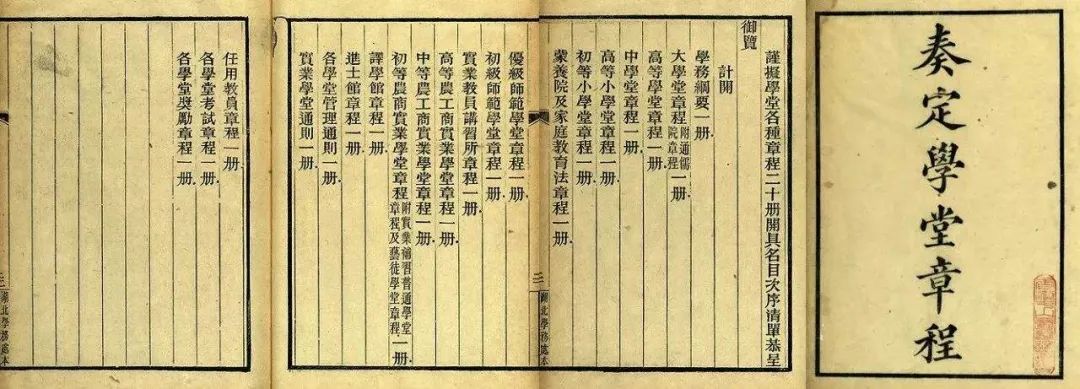 奏定學堂章程
謹擬學堂各種章程二十册開具名目次序清單恭呈
御覽
計開
學務綱要一册
大學堂章程附通儒院章程一册
高等學堂章程一册
中學堂章程一册
高等小學堂章程一册
初等小學堂章程一册
蒙養院及家庭教育法章程一册
三
湖北學務處本
優級師範學堂章程一册
初級師範學堂章程一册
實業教員講習所章程一册
高等農工商實業學堂章程一册
中等農工商實業學堂章程一册
初等農商實業學堂章程附實業補習普通學堂章程及藝徒學堂章程一册
譯學館章程一册
進士館章程一册
各學堂管理通則一册
實業學堂通則一册
任用教員章程一册
各學堂考試章程一册
各學堂奬勵章程一册
三
湖北學務處本